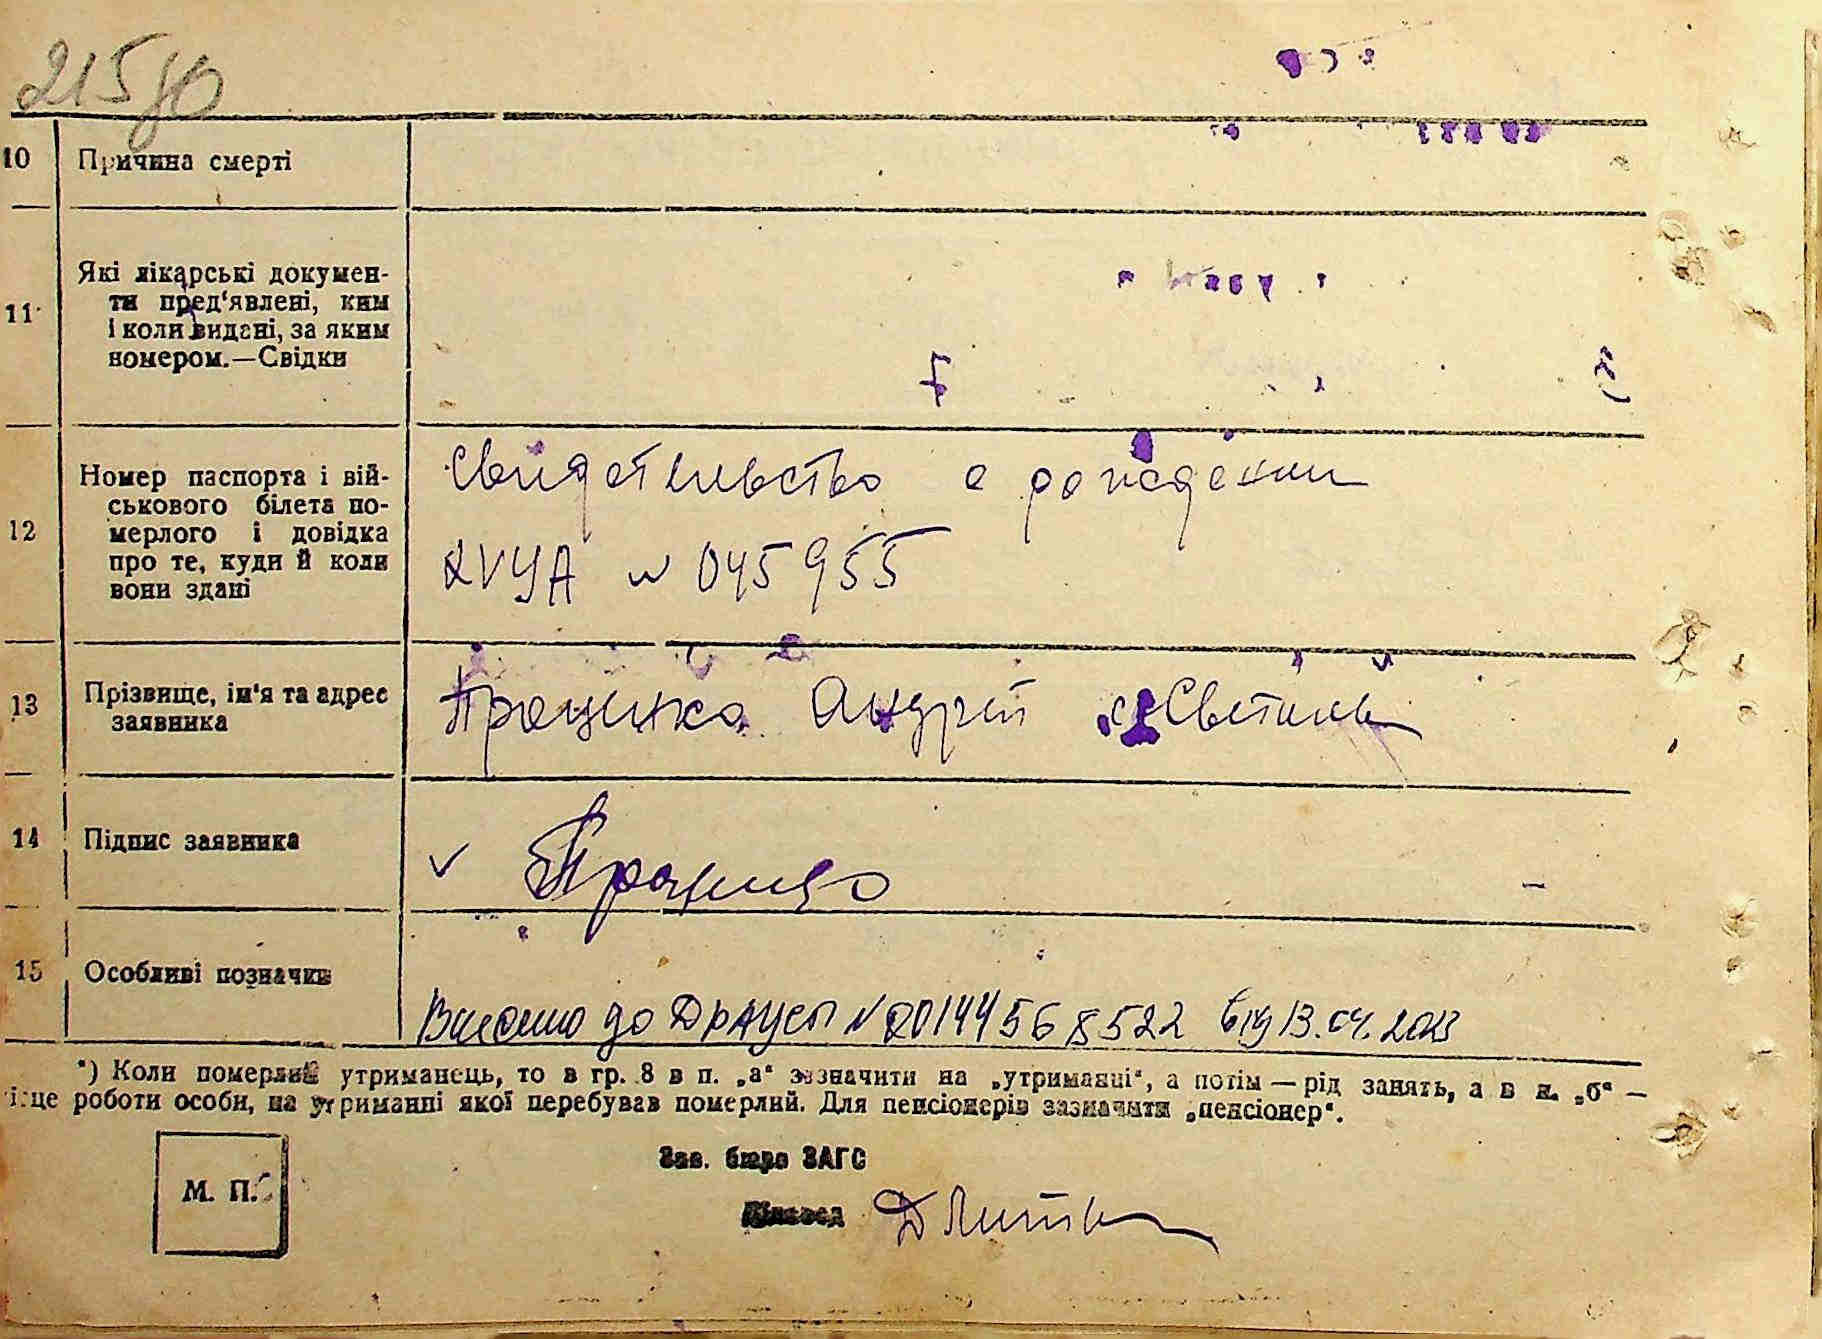 215
10 Причина смерті
11 Які лікарські докумен-
ти пред'явлені, ким
і коли видані, за яким
номером.—Свідки
12 Номер паспорта і вій-
ськового білета по-
мерлого і довідка
про те, куди й коли
вони здані
Свидетельство о рождении
№ 045955
13 Прізвище, ім'я та адрес
заявника
Проценко Андрій
14 Підпис заявника
Проценко
15 Особливі позначки
Внесено до ДРАЦСГ № 00144568522 від 13.04.2023
*) Коли померлий утриманець, то в гр. 8 в п. „а“ зазначити на „утриманні“, а потім — рід занять, а в п. „б“ —
місце роботи особи, на утриманні якої перебував померлий. Для пенсіонерів зазначити „пенсіонер“.
М. П.
Зав. бюро ЗАГС
Діловод